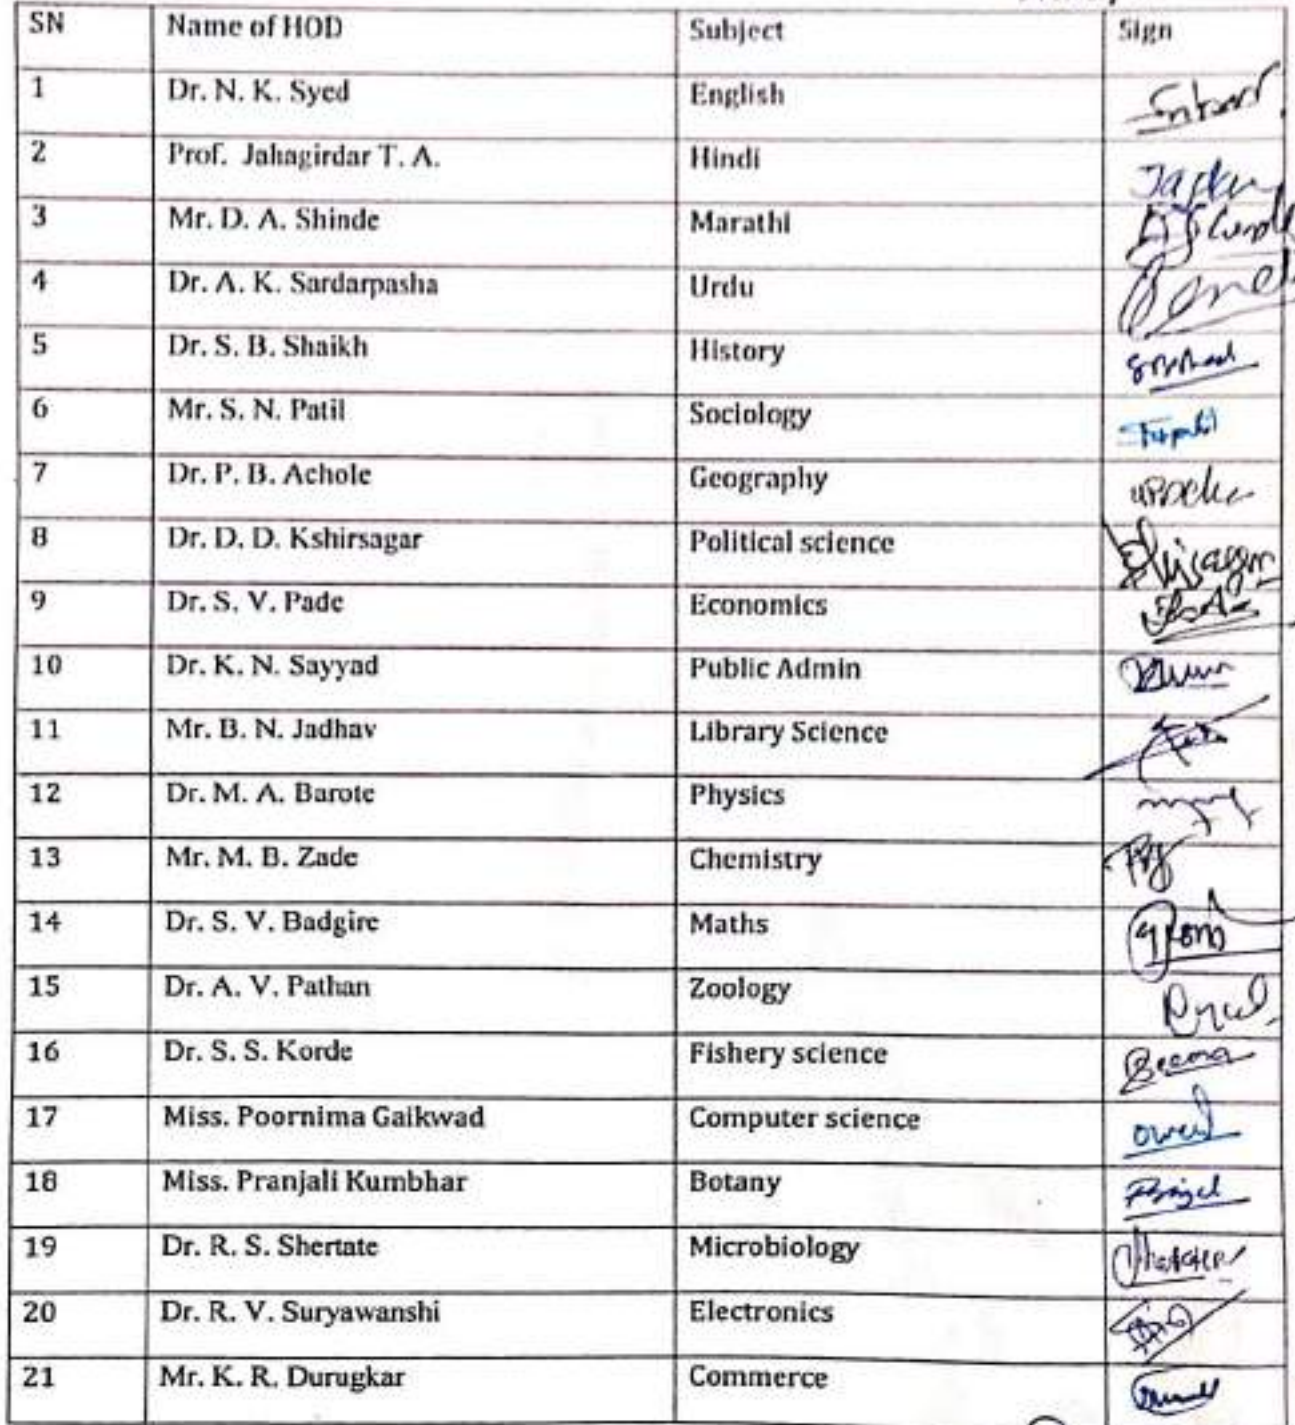 SN Name of HOD Subject Sign
1 Dr. N. K. Syed English
2 Prof. Jahagirdar T. A. Hindi
3 Mr. D. A. Shinde Marathi
4 Dr. A. K. Sardarpasha Urdu
5 Dr. S. B. Shaikh History
6 Mr. S. N. Patil Sociology
7 Dr. P. B. Achole Geography
8 Dr. D. D. Kshirsagar Political science
9 Dr. S. V. Pade Economics
10 Dr. K. N. Sayyad Public Admin
11 Mr. B. N. Jadhav Library Science
12 Dr. M. A. Barote Physics
13 Mr. M. B. Zade Chemistry
14 Dr. S. V. Badgire Maths
15 Dr. A. V. Pathan Zoology
16 Dr. S. S. Korde Fishery science
17 Miss. Poornima Gaikwad Computer science
18 Miss. Pranjali Kumbhar Botany
19 Dr. R. S. Shertate Microbiology
20 Dr. R. V. Suryawanshi Electronics
21 Mr. K. R. Durugkar Commerce